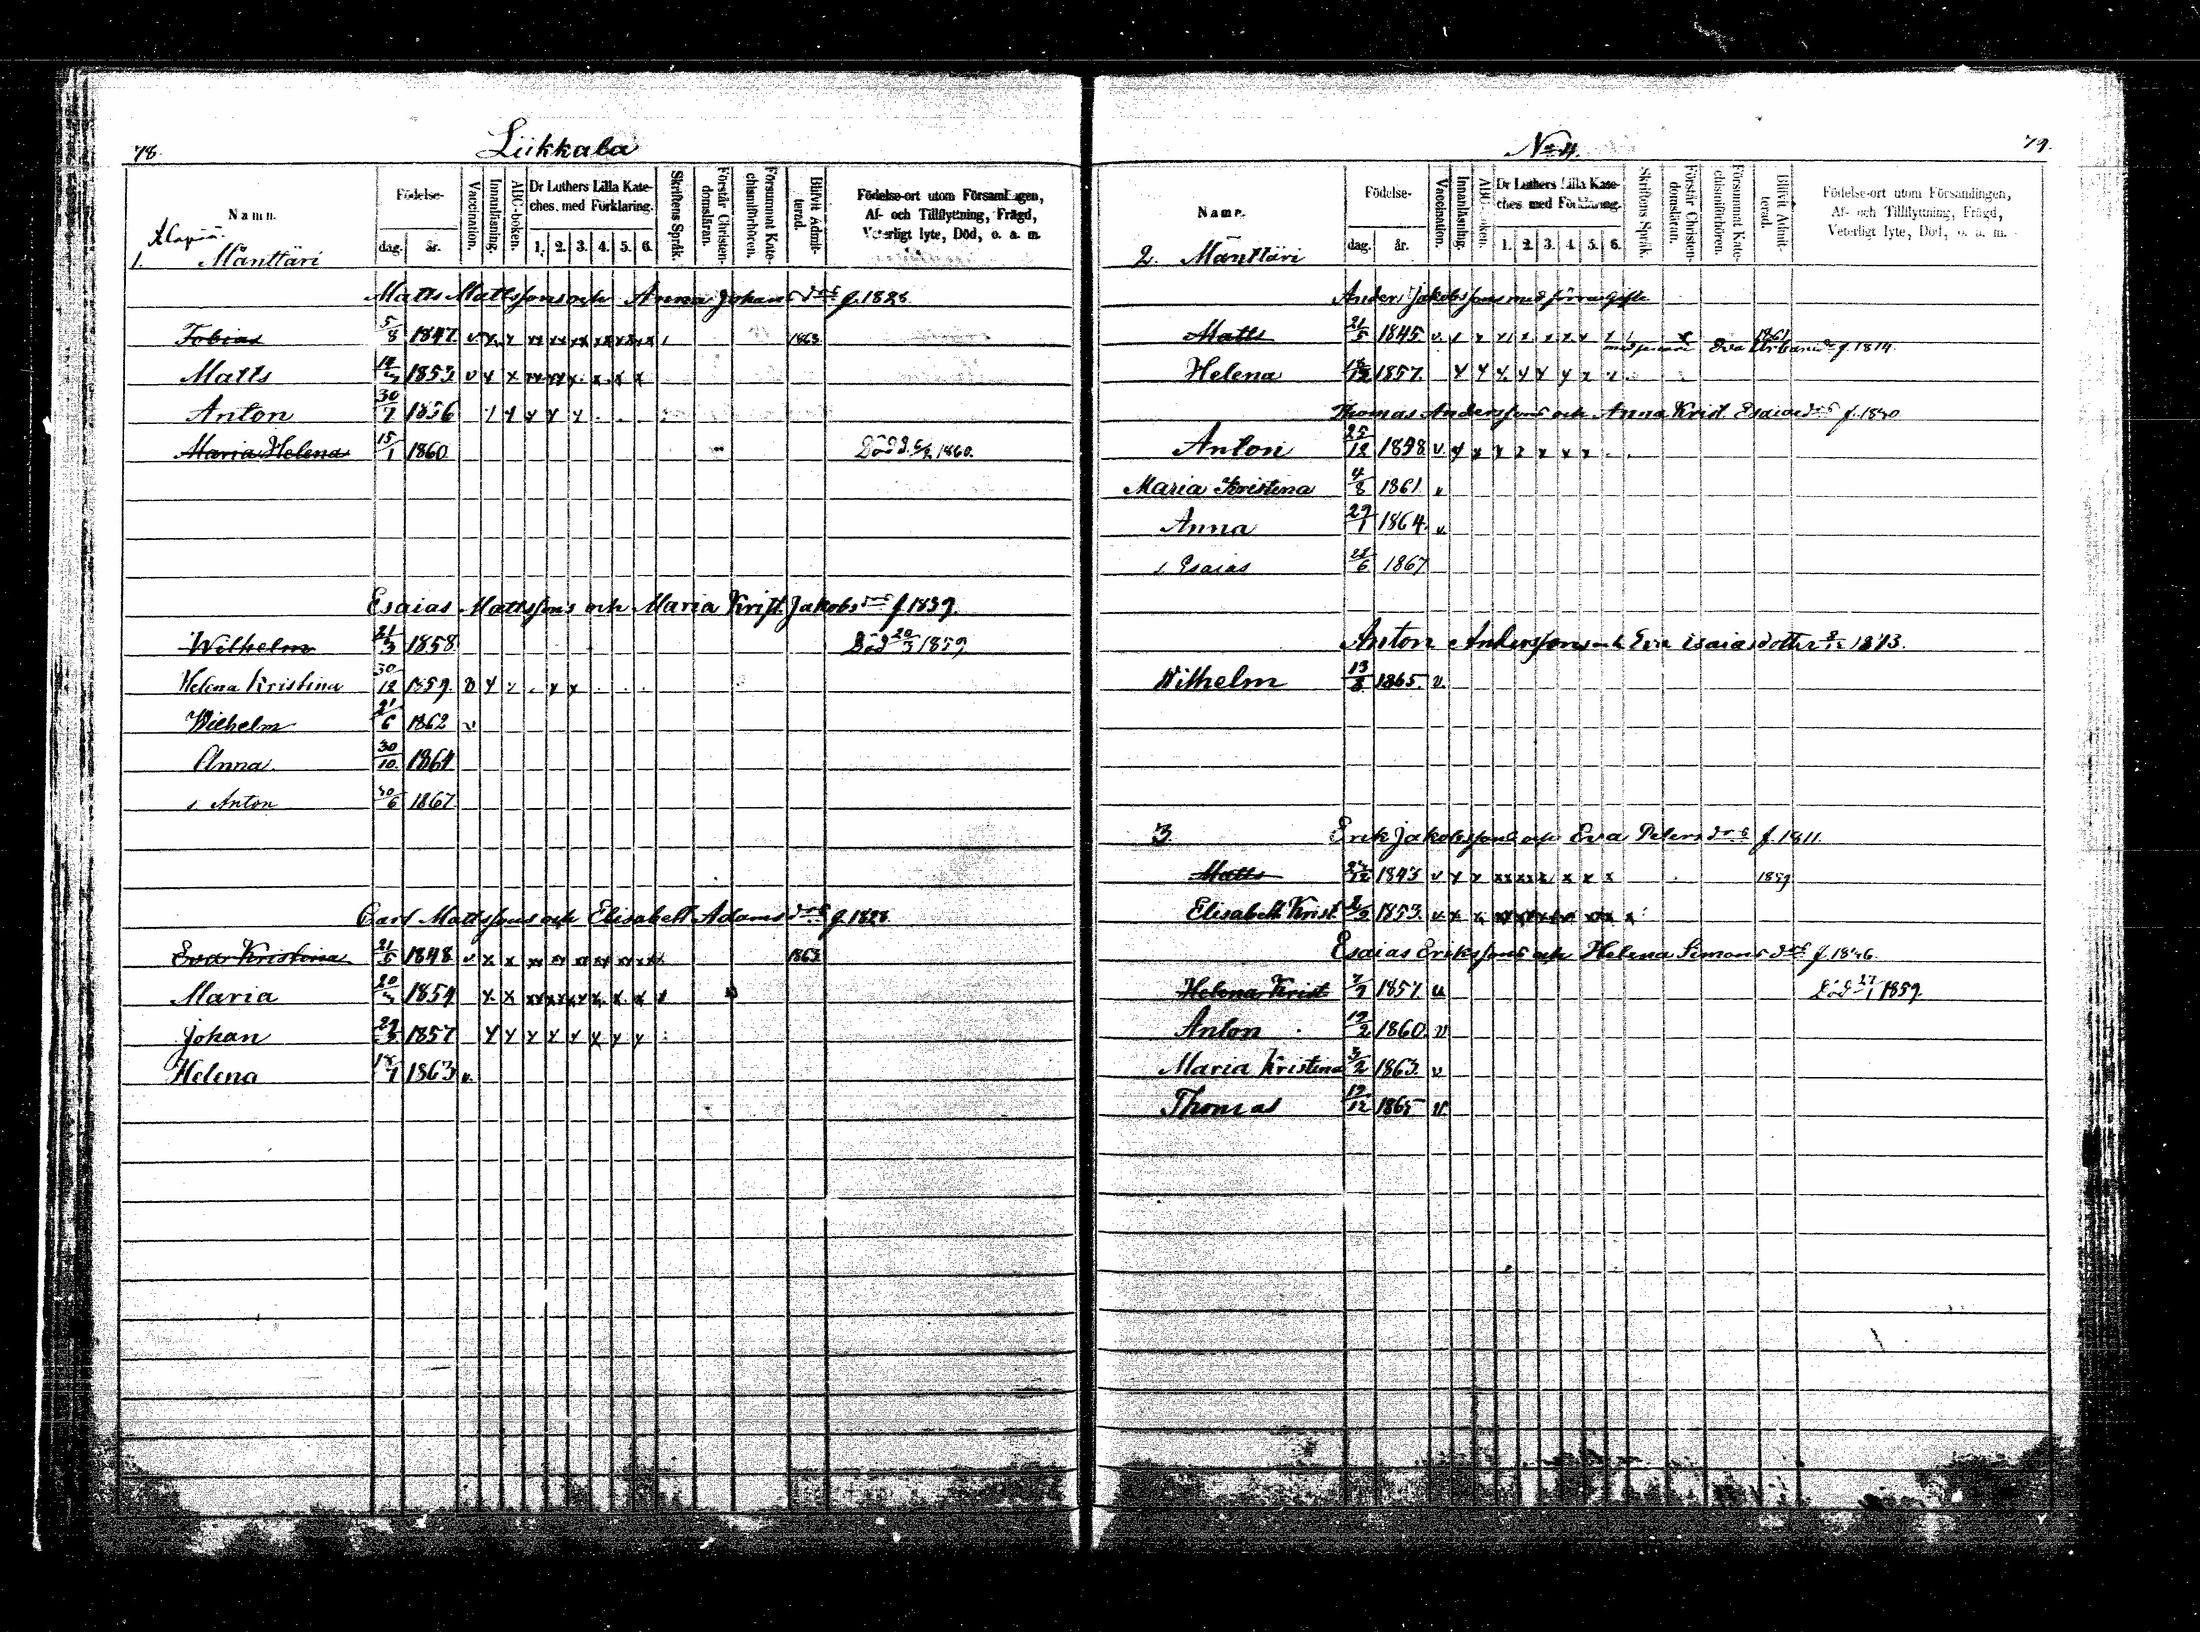 78.
Liikkala
Namn.
Födelse-
dag. år.
Vaccination.
Innanläsning.
ABC-boken.
Dr Luthers Lilla Kateches. med Förklaring.
1. 2. 3. 4. 5. 6.
Skriftens Språk.
Förstår Christendomsläran.
Försummat Katechismiförhören.
Blifvit Admitterad.
Födelse-ort utom Församlingen,
Af- och Tillflyttning, Frägd,
Veterligt lyte, Död, o. a. m.
1. Mänttäri
Matts Mattssons och Anna Johans dr f. 1826.
Tobias 5/8 1847. v x x xx xx xx xx xx xx 1863
Matts 1853 v x x xx xx x x x x
Anton 30/7 1856 x x x x
Maria Helena 15/1 1860 Död 1860.
Esaias Mattssons och Maria Krist. Jakobs dr f. 1839.
Wilhelm 21/3 1858 Död 20/3 1859
Helena Kristina 30/12 1859. v x x
Wilhelm 21/6 1862 v
Anna 30/10 1864
s. Anton 30/6 1867
Carl Mattssons och Elisabett Adams dr f. 1828
Eva Kristina 21/5 1848 v x x xx xx xx xx xx xx 1863
Maria 1854 x x xx xx xx x x x
Johan 29/3 1857 x x x x x x x x
Helena 18/1 1863 v.
No 4.
79.
Namn.
Födelse-
dag. år.
Vaccination.
Innanläsning.
ABC-boken.
Dr Luthers Lilla Kateches. med Förklaring.
1. 2. 3. 4. 5. 6.
Skriftens Språk.
Förstår Christendomsläran.
Försummat Katechismiförhören.
Blifvit Admitterad.
Födelse-ort utom Församlingen,
Af- och Tillflyttning, Frägd,
Veterligt lyte, Död, o. a. m.
2. Mänttäri
Anders Jakobssons med förra gifte
Matts 21/5 1845 v. x x x x x x x x 1861
Eva Urbans dr f. 1814.
Helena 18/12 1857. x x x x x x x x
Thomas Anderssons och Anna Krist. Esaias dr f. 1840
Anton 25/12 1858 v. x x x x x x x
Maria Kristina 4/8 1861 v
Anna 29/1 1864. v.
s. Esaias 28/6 1867
Anton Anderssons och Eva Esaiasdotter 1843.
Wilhelm 13/8 1865. v.
3. Erik Jakobssons och Eva Peters dr f. 1811.
Matts 1843 v x x xx xx x x x x 1859
Elisabeth Krist. 2/2 1853. v x x xx xx xx xx xx x
Esaias Erikssons och Helena Simons dr f. 1836.
Helena Krist. 7/7 1857. v Död 27/1 1859.
Anton 19/2 1860. v
Maria Kristina 3/2 1863. v
Thomas 19/12 1865 v.